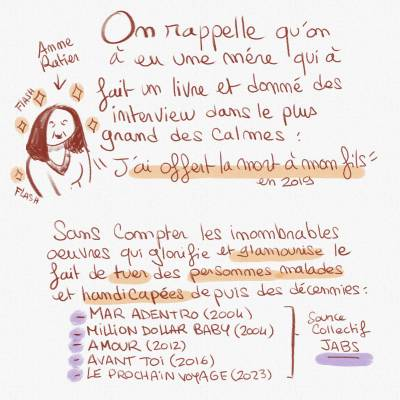 On rappelle qu'on
à eu une mère qui à
fait un livre et donné des
interview dans le plus
grand des calmes :
"J'ai offert la mort à mon fils"
en 2019
Anne
Ratier
FLASH
FLASH
Sans compter les innombrables
oeuvres qui glorifie et glamourise le
fait de tuer des personnes malades
et handicapées depuis des décennies :
- MAR ADENTRO (2004)
- MILLION DOLLAR BABY (2004)
- AMOUR (2012)
- AVANT TOI (2016)
- LE PROCHAIN VOYAGE (2023)
Source
Collectif
JABS